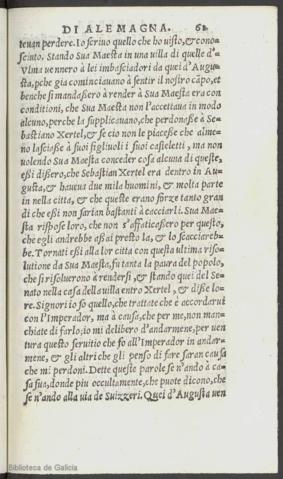 DI ALEMAGNA. 62
teuan perdere. Io scriuo quello che ho uisto, & cono-
sciuto. Stando Sua Maesta in una uilla di quelle d'
Vlma vennero à lei imbasciadori da quei d'Augu-
sta, pche gia cominciauano à sentir il nostro cãpo, et
benche si mandassero à render à Sua Maesta era con
conditioni, che Sua Maesta non l'accettaua in modo
alcuno, perche la supplicauano, che perdonasse à Se-
bastiano Xertel, & se cio non le piacesse che alme-
no lasciasse à suoi figliuoli i suoi casteletti, ma non
uolendo Sua Maesta conceder cosa alcuna di queste,
essi dissero, che Sebastian Xertel era dentro in Au-
gusta, & haueua due mila huomini, & molta parte
in nella citta, & che queste erano forze tanto gran
di che essi non sarian bastanti à cacciarli. Sua Mae
sta rispose loro, che non s'affaticassero per questo,
che egli andrebbe assai presto la, & lo scacciareb-
be. Tornati essi alla lor citta con questa ultima riso-
lutione da Sua Maesta, fu tanta la paura del popolo,
che si risoluerono à rendersi, & stando quei del Se-
nato nella casa della uilla entro Xertel, & disse lo-
re. Signori io so quello, che trattate che è accordarui
con l'Imperador, ma à causa, che per me, non man-
chiate di farlo, io mi delibero d'andarmene, per uen
tura questo seruitio che fo all'Imperador in andar-
mene, & gli altri che gli penso di fare saran causa
che mi perdoni. Dette queste parole se n'ando à ca-
sa sua, donde piu occultamente, che puote dicono, che
se n'ando alla uia de Suizzeri. Quei d'Augusta uen
Biblioteca de Galicia